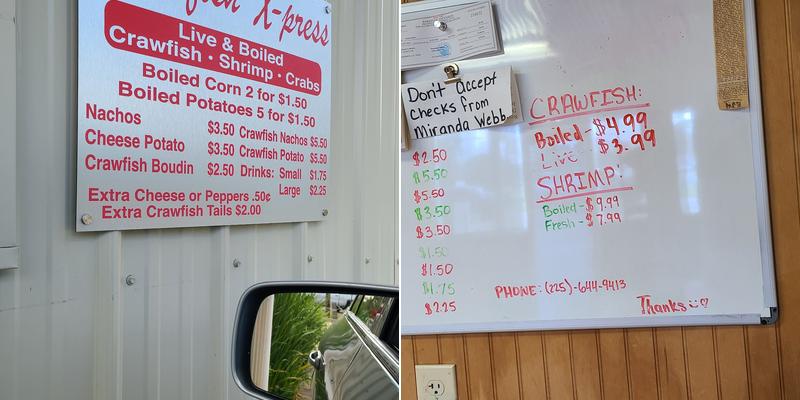 X-press
Live & Boiled
Crawfish • Shrimp • Crabs
Boiled Corn 2 for $1.50
Boiled Potatoes 5 for $1.50
Nachos $3.50 Crawfish Nachos $5.50
Cheese Potato $3.50 Crawfish Potato $5.50
Crawfish Boudin $2.50 Drinks: Small $1.75
Large $2.25
Extra Cheese or Peppers .50¢
Extra Crawfish Tails $2.00
Don't Accept
checks from
Miranda Webb
$2.50
$5.50
$5.50
$3.50
$3.50
$1.50
$1.50
$1.75
$2.25
CRAWFISH:
Boiled - $4.99
Live - $3.99
SHRIMP:
Boiled - $9.99
Fresh - $7.99
PHONE: (225)-644-9413
Thanks